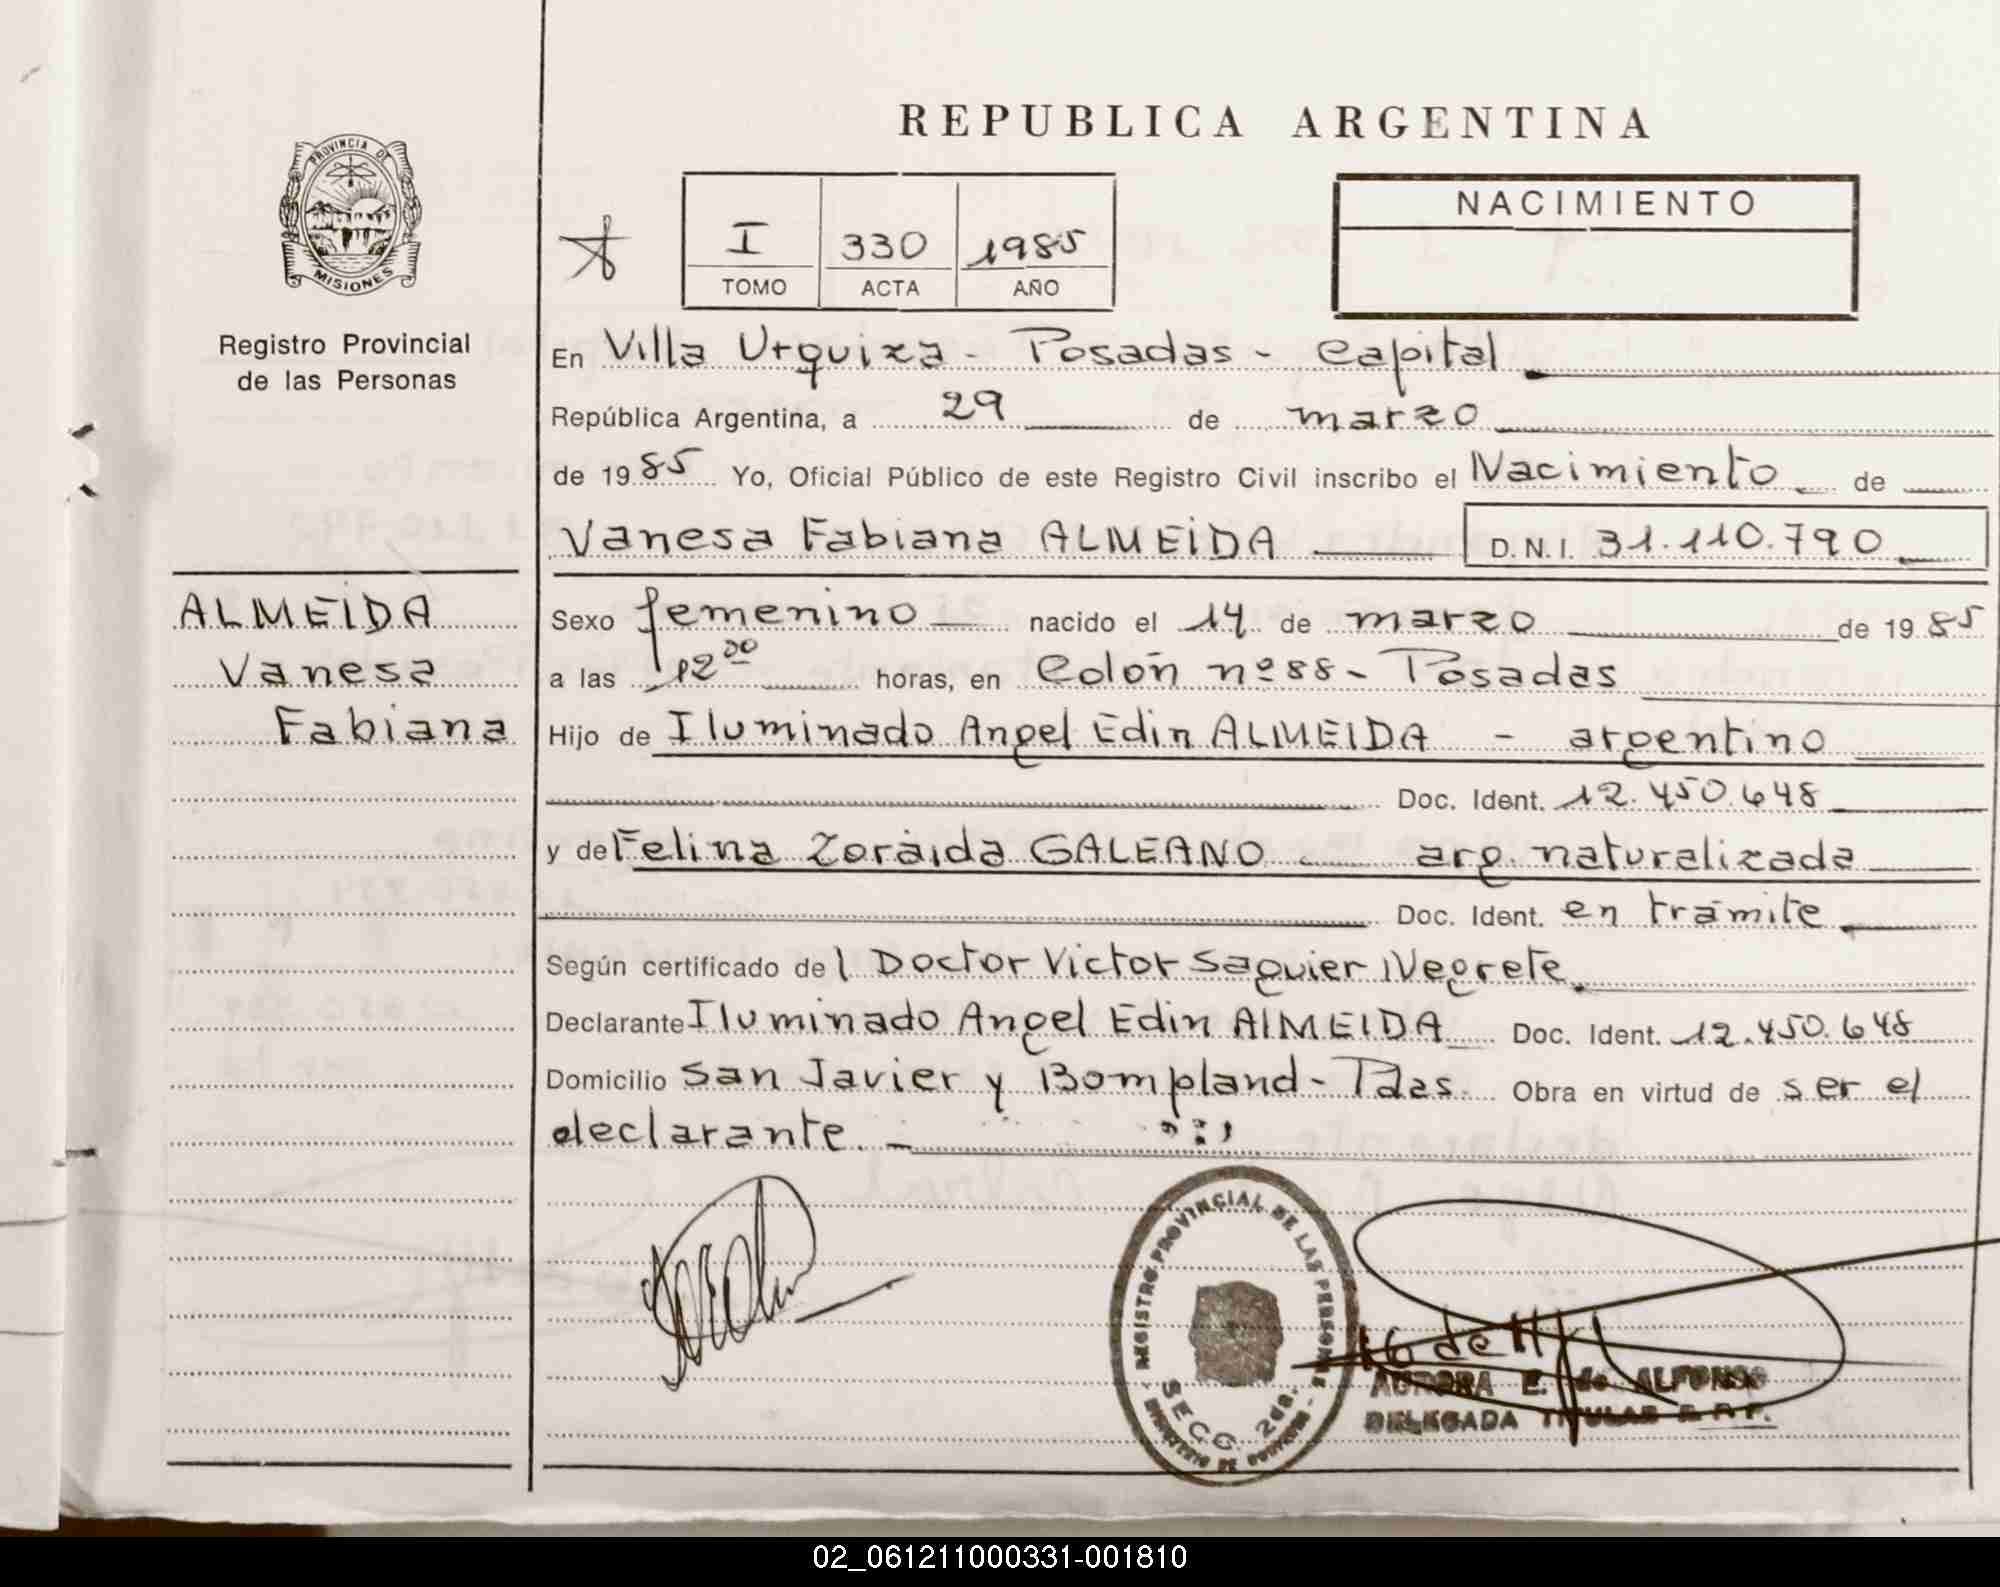 REPUBLICA ARGENTINA
PROVINCIA DE
MISIONES
Registro Provincial
de las Personas
I 330 1985
TOMO ACTA AÑO
NACIMIENTO
En Villa Urquiza - Posadas - Capital
República Argentina, a 29 de marzo
de 1985 Yo, Oficial Público de este Registro Civil inscribo el Nacimiento de
Vanesa Fabiana ALMEIDA D.N.I. 31.110.790
ALMEIDA
Vanesa
Fabiana
Sexo femenino nacido el 14 de marzo de 1985
a las 12 00 horas, en Colón nº 88 - Posadas
Hijo de Iluminado Angel Edin ALMEIDA - argentino
Doc. Ident. 12.450.648
y de Felina Zoraida GALEANO arg. naturalizada
Doc. Ident. en trámite
Según certificado del Doctor Victor Saguier Negrete
Declarante Iluminado Angel Edin AlMEIDA Doc. Ident. 12.450.648
Domicilio San Javier y Bompland - Pdas. Obra en virtud de ser el
declarante. -
REGISTRO PROVINCIAL DE LAS PERSONAS
SECC. 268.
AURORA E. de ALFONSO
DELEGADA TITULAR R.P.P.
02_061211000331-001810